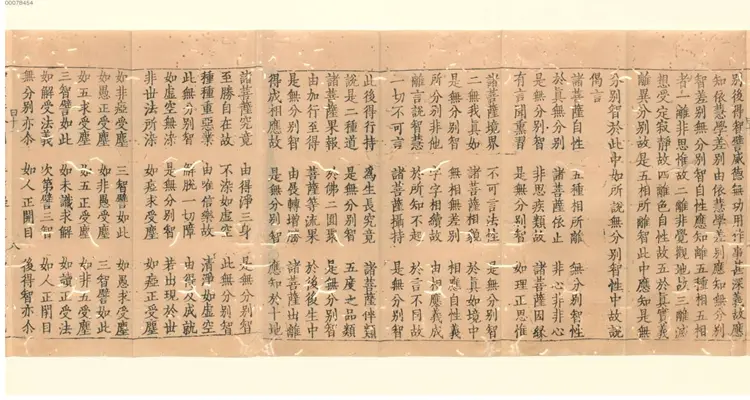 00078454
別後得智譬威德無功用作事甚深義故應
知依慧學差別由依慧學差別應知無分別
智差別無分別智自性應知離五種相五相
者一離非思惟故二離非覺觀地故三離滅
想受定寂靜故四離色自性故五於真實義
離異分別故是五相所離智此中應知是無
分別智於此中如所說無分別智性中故說
偈言
諸菩薩自性 五種相所離 無分別智性
於真無分別 諸菩薩依止 非心非非心
是無分別智 非思疾類故 諸菩薩因緣
有言聞熏習 是無分別智 如理正思惟
諸菩薩境界 不可言法性 是無分別智
二無我真如 諸菩薩相貌 於真如境中
是無分別智 無相無差別 相應自性義
所分別非他 字字相續故 由相應義成
離言說智慧 於所知不起 於言不同故
一切不可言 諸菩薩攝持 是無分別智
此後得行持 為生長究竟 諸菩薩伴類
說是二種道 是無分別智 五度之品類
諸菩薩果報 於佛二圓聚 是無分別智
由加行至得 菩薩等流果 於後後生中
是無分別智 由展轉增勝 諸菩薩出離
得成相應故 是無分別智 應知於十地
諸菩薩究竟 由得淨三身 是無分別智
至勝自在故 不染如虛空 此無分別智
種種重惡業 由唯信樂故 清淨如虛空
此無分別智 解脫一切障 由得及成就
如虛空無染 是無分別智 若出現於世
非世法所染 如瘂求受塵 如瘂正受塵
如非瘂受塵 三智譬如此 如愚求受塵
如愚正受塵 如非愚受塵 三智譬如此
如五求受塵 如五正受塵 如非五受塵
三智譬如此 如未識求解 如讀正受法
如解受法義 次第譬三智 如人正閉目
無分別亦尒 如人正開目 後得智亦尒